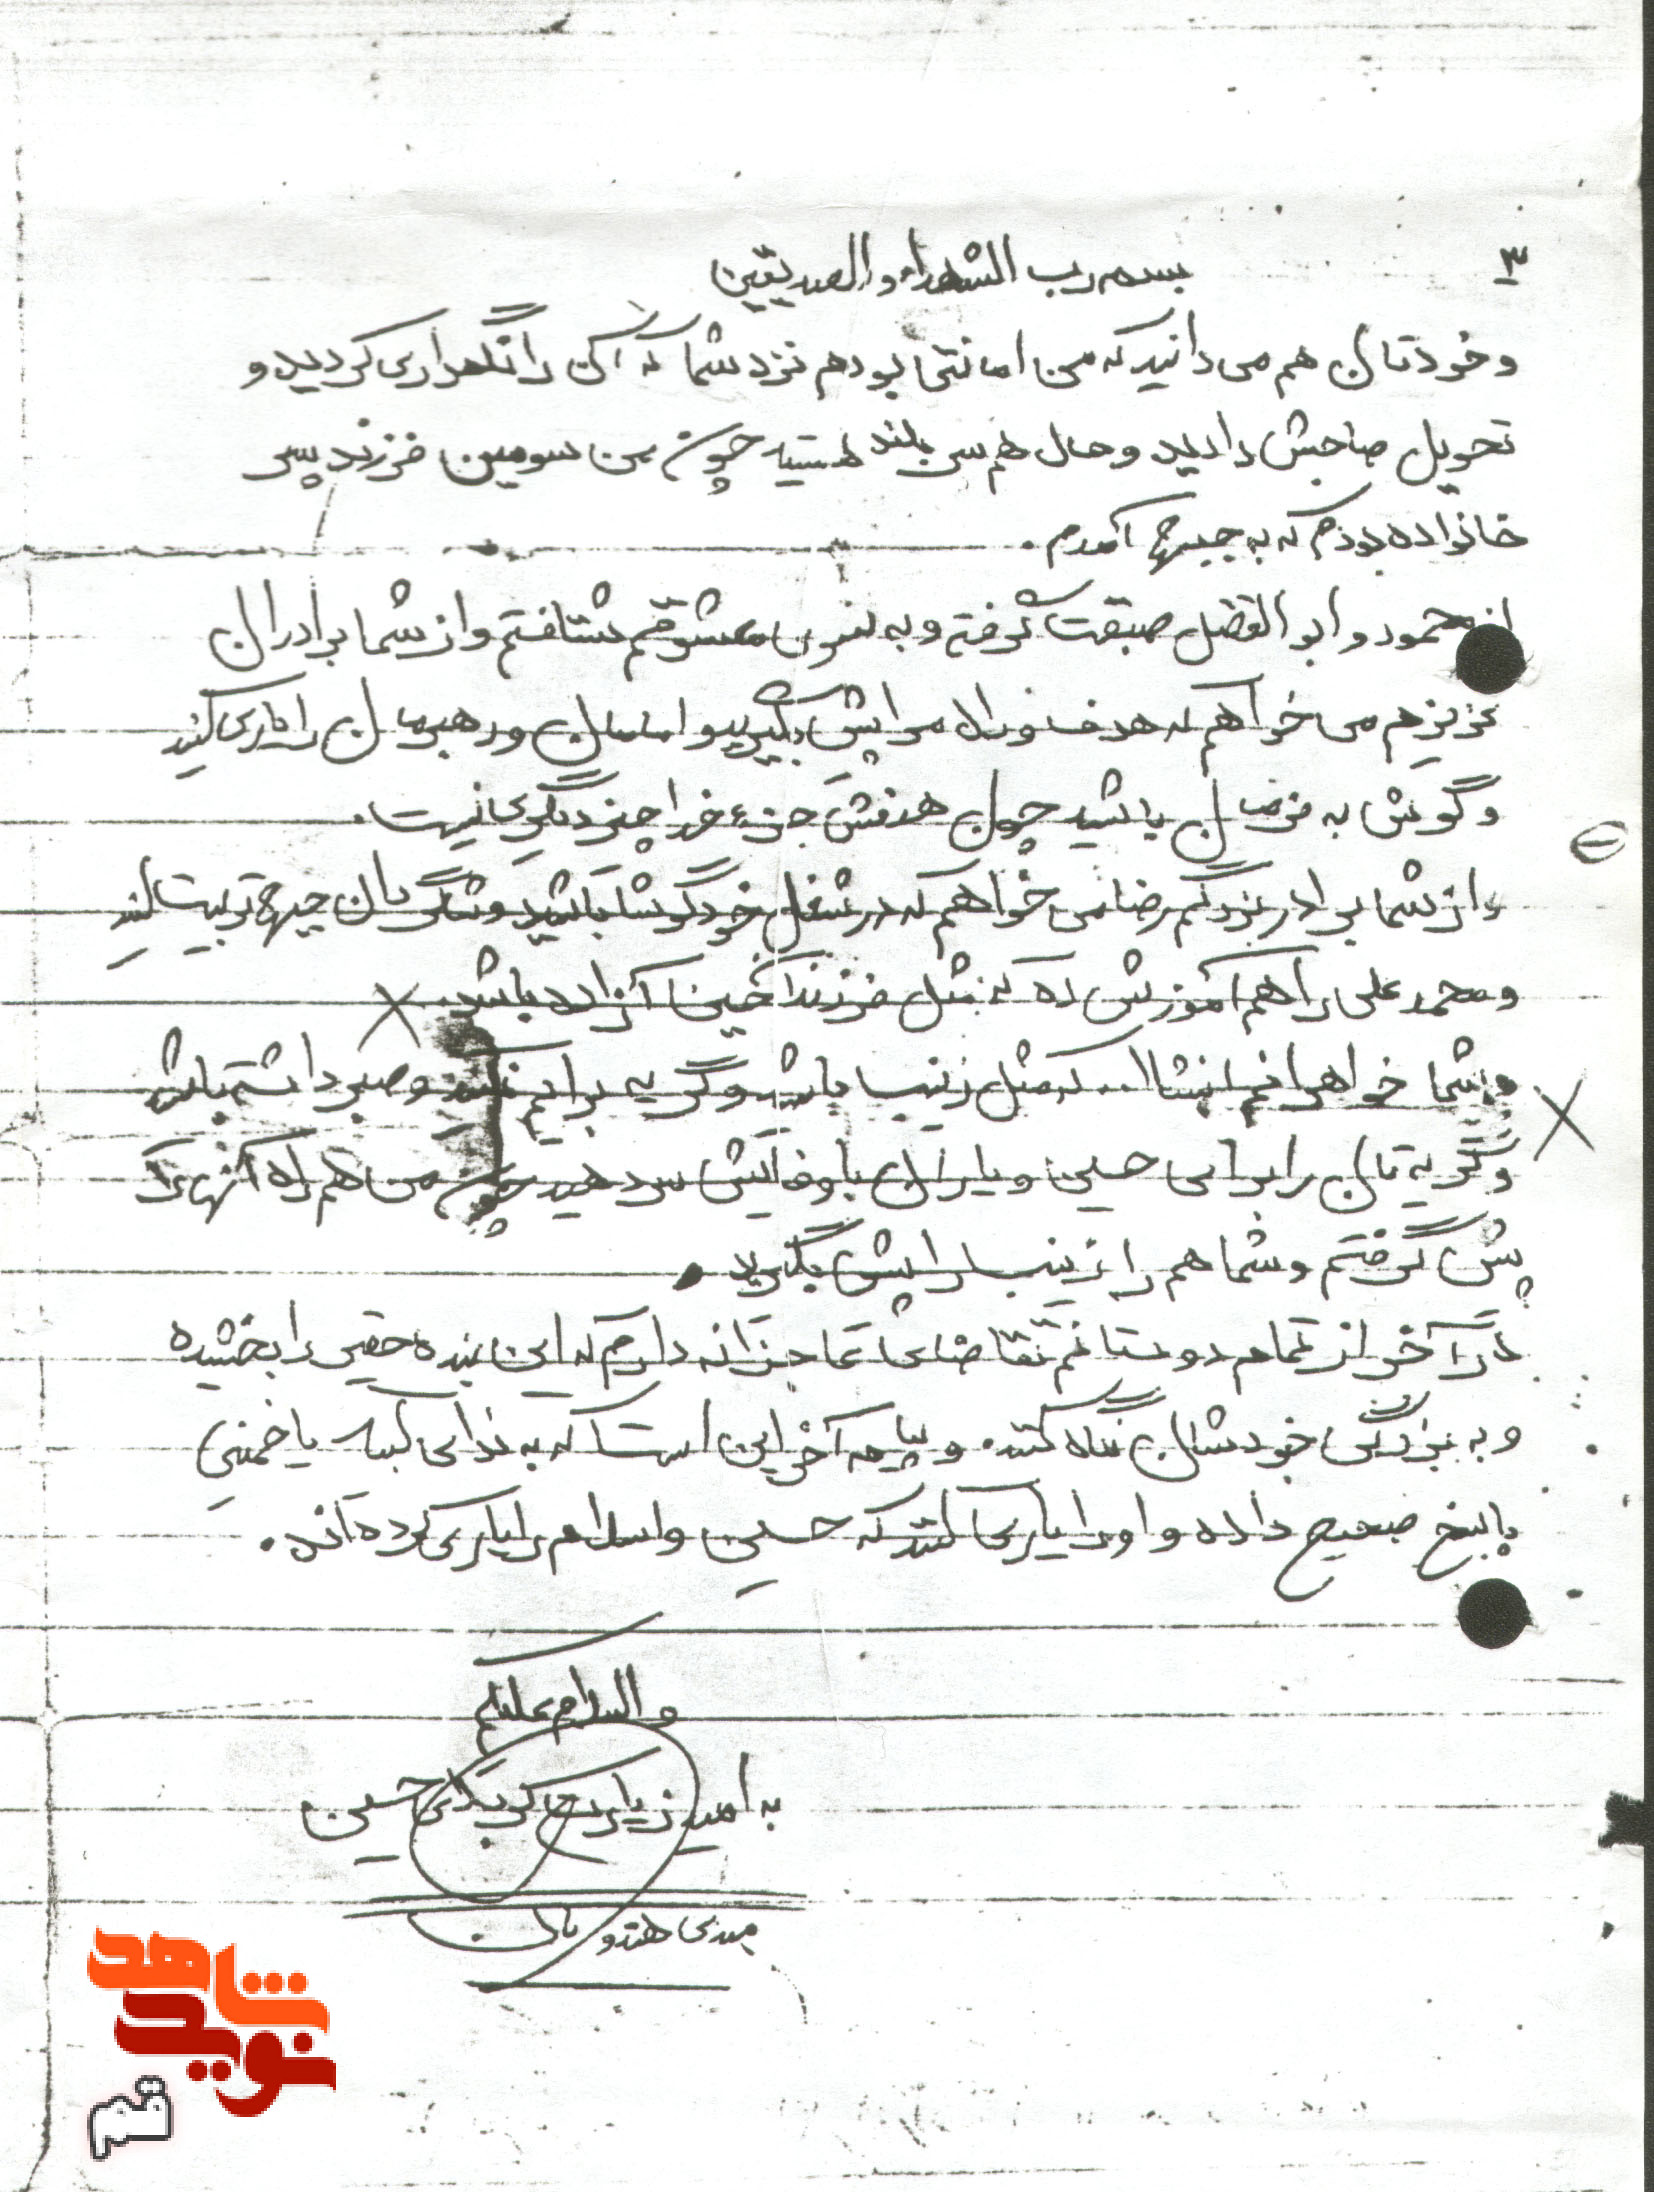 ۳
بسم رب الشهداء والصدیقین
و خودتان هم می دانید که من امانتی بودم نزد شما که آن را نگهداری کردید و
تحویل صاحبش دادید و حال هم سربلند هستید چون من سومین فرزند پسر
خانواده بودم که به جبهه آمدم.
از محمود و ابوالفضل صبقت گرفته و به سوی معشوقم شتافتم و از شما برادران
عزیزم می خواهم که هدف و راه مرا پیش بگیرید و امامان و رهبرمان را یاری کنید
و گوش به فرمان باشید چون هدفش جزء خدا چیز دیگری نیست.
و از شما برادر بزرگم رضا می خواهم که در شغل خود کوشا باشید و شاگردان جبهه تربیت کنید
و محمد علی را هم آموزش ده که مثل فرزند حسین آزاده باشد.
و شما خواهرانم انشاا... که مثل زینب باشید و گریه برایم نکنید و صبر داشته باشید
و گریه تان را برای حسین و یاران با وفایش سر دهید چون من هم راه آنها را
پیش گرفتم و شما هم راه زینب را پیش بگیرید.
در آخر از تمام دوستانم تقاضای عاجزانه دارم که این بنده حقیر را بخشیده
و به بزرگی خودشان نگاه کنند. و پیام آخر این است که به ندای لبیک یا خمینی
پاسخ صحیح داده و او را یاری کنند که حسین و اسلام را یاری کرده اند.
والسلام علیکم
به امید زیارت کربلای حسین
مهدی هندویان
شاهد
نوید
قم